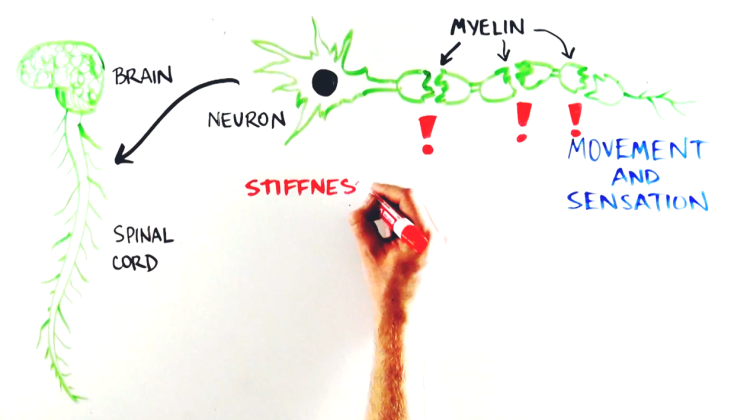 MYELIN
BRAIN
NEURON
!
!
!
MOVEMENT
AND
SENSATION
STIFFNES
SPINAL
CORD